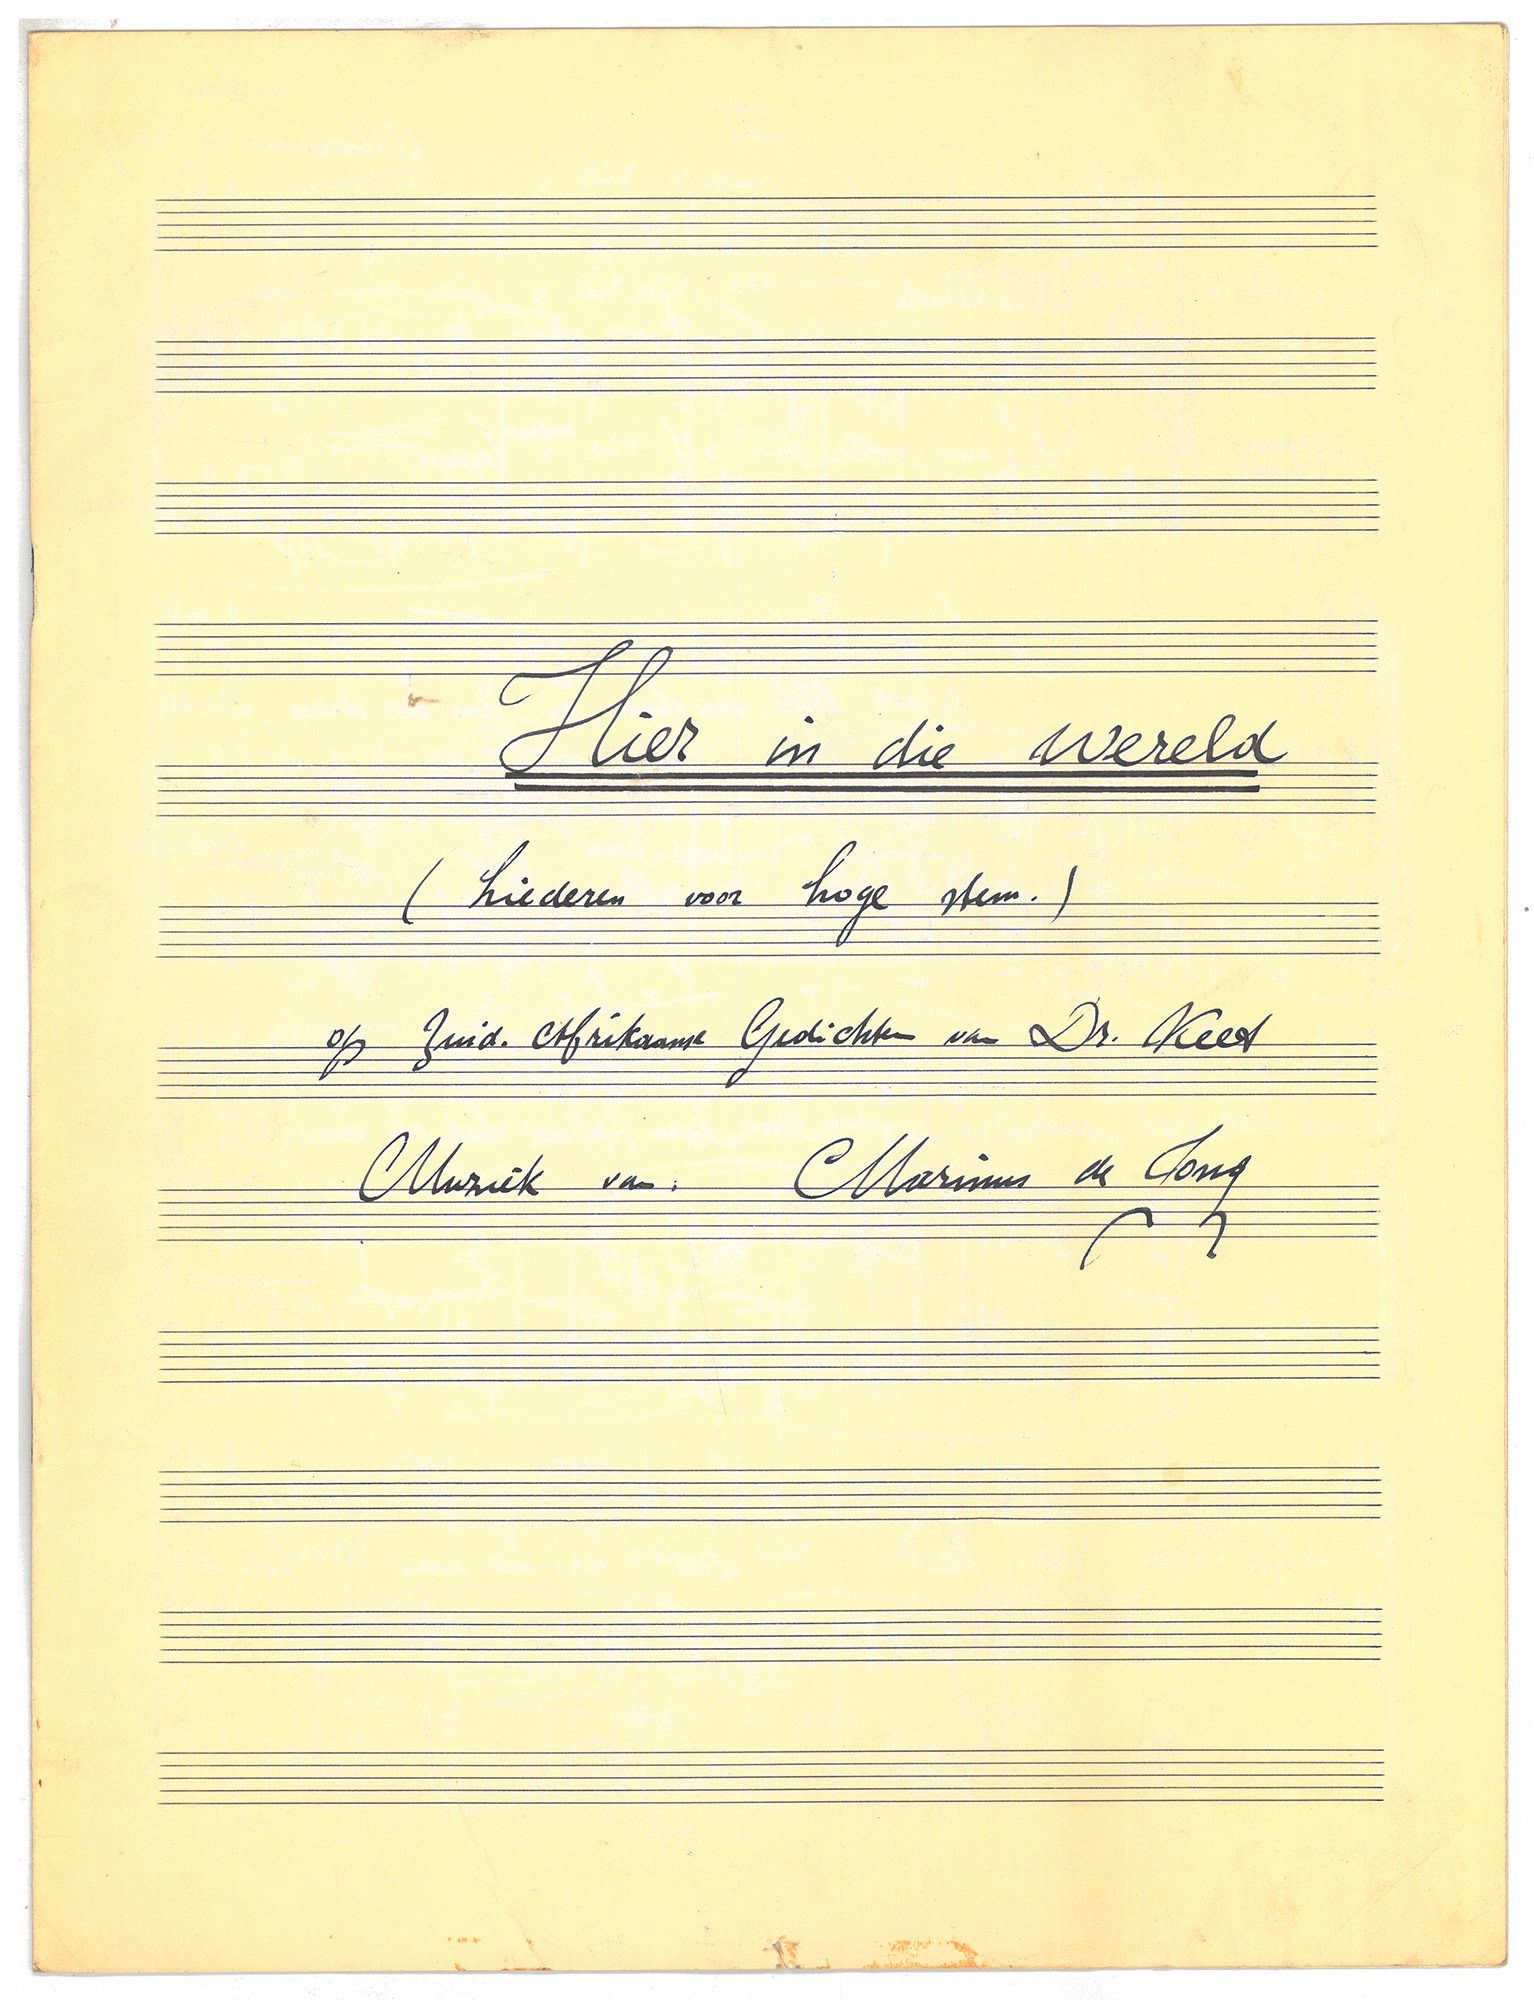 Hier in die wereld
( Liederen voor hoge stem. )
op Zuid. Afrikaanse Gedichten van Dr. Keet
Muziek van: Marinus de Jong